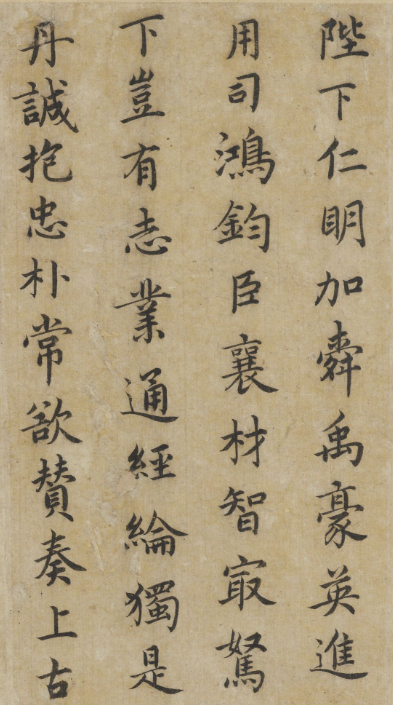 陛下仁明加舜禹豪英進
用司鴻鈞臣襄材智㝡駑
下豈有志業通經綸獨是
丹誠抱忠朴常欲賛奏上古